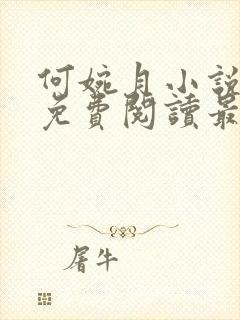 何婉月小說
免費閱讀最
屠牛